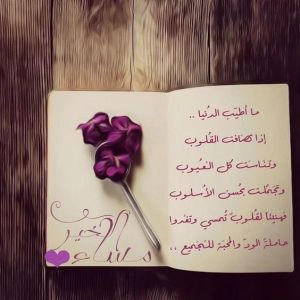 ما أطيَب الدُنيا ..
إذا تصَافت القُلوب
وتناسَت كُل العُيوب
وتجمّلت بحُسن الأسلوب
فهنيئا لقلوبٌ تُمسي وتغدوا
حاملة الودّ والمحبّة للجَميع ،،
مساء الخير